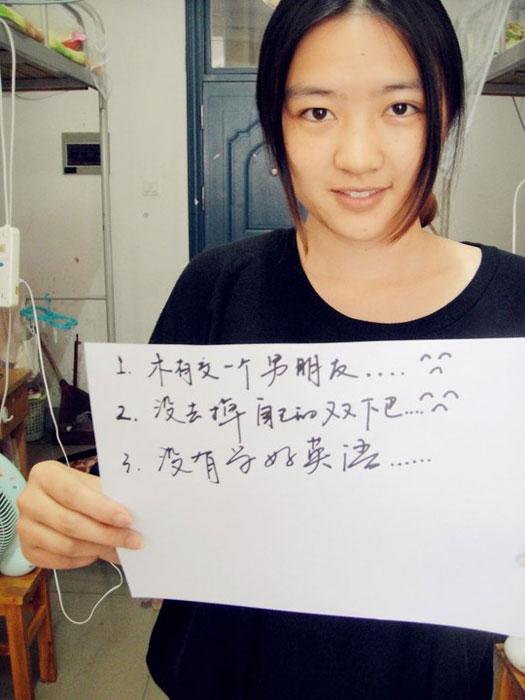 1. 木有交一个男朋友....
2. 没去掉自己的双下巴....
3. 没有学好英语......